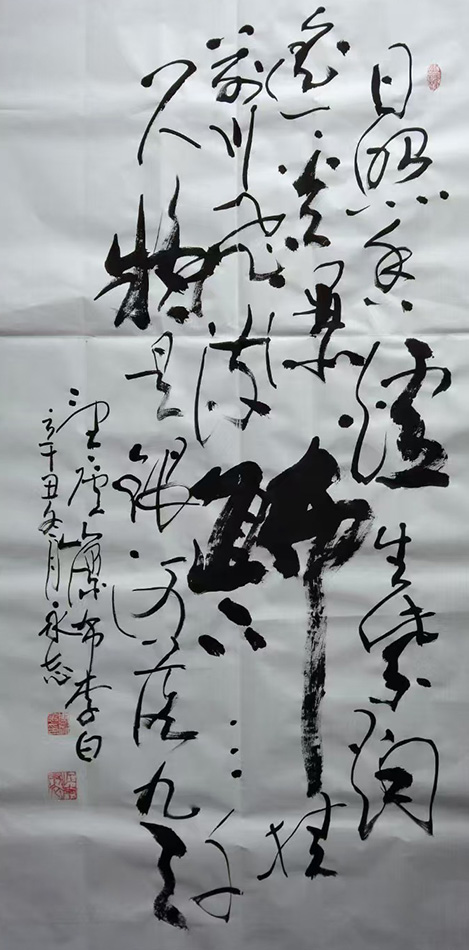 日照香爐生紫烟
遥看瀑布挂
前川飛流直下三千
尺疑是銀河落九天
望廬山瀑布李白
辛丑冬月永志